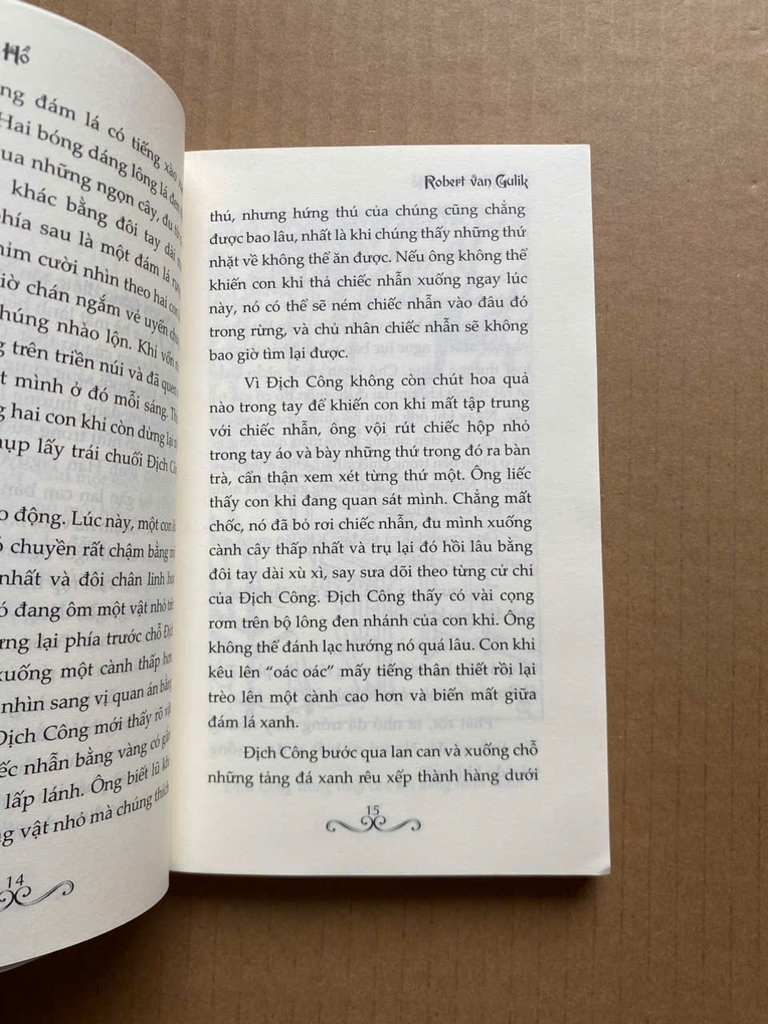 Hổ
đám lá có tiếng xào
Hai bóng dáng lông lá đen
những ngọn cây, đu
khác bằng đôi tay dài
sau là một đám lá
cười nhìn theo hai con
chán ngắm vẻ uyển
nhào lộn. Khi vốn
trên triền núi và đã quen
mình ở đó mỗi sáng.
hai con khỉ còn dừng lại
lấy trái chuối Địch
động. Lúc này, một con
chuyền rất chậm bằng
nhất và đôi chân linh
đang ôm một vật nhỏ
lại phía trước chỗ
xuống một cành thấp hơn
nhìn sang vị quan án bằng
Địch Công mới thấy rõ
nhẫn bằng vàng có
lấp lánh. Ông biết lũ
vật nhỏ mà chúng thích
14
Robert van Gulik
thú, nhưng hứng thú của chúng cũng chẳng
được bao lâu, nhất là khi chúng thấy những thứ
nhặt về không thể ăn được. Nếu ông không thể
khiến con khỉ thả chiếc nhẫn xuống ngay lúc
này, nó có thể sẽ ném chiếc nhẫn vào đâu đó
trong rừng, và chủ nhân chiếc nhẫn sẽ không
bao giờ tìm lại được.
Vì Địch Công không còn chút hoa quả
nào trong tay để khiến con khỉ mất tập trung
với chiếc nhẫn, ông vội rút chiếc hộp nhỏ
trong tay áo và bày những thứ trong đó ra bàn
trà, cẩn thận xem xét từng thứ một. Ông liếc
thấy con khỉ đang quan sát mình. Chẳng mất
chốc, nó đã bỏ rơi chiếc nhẫn, đu mình xuống
cành cây thấp nhất và trụ lại đó hồi lâu bằng
đôi tay dài xù xì, say sưa dõi theo từng cử chỉ
của Địch Công. Địch Công thấy có vài cọng
rơm trên bộ lông đen nhánh của con khỉ. Ông
không thể đánh lạc hướng nó quá lâu. Con khỉ
kêu lên “oác oác” mấy tiếng thân thiết rồi lại
trèo lên một cành cao hơn và biến mất giữa
đám lá xanh.
Địch Công bước qua lan can và xuống chỗ
những tảng đá xanh rêu xếp thành hàng dưới
15